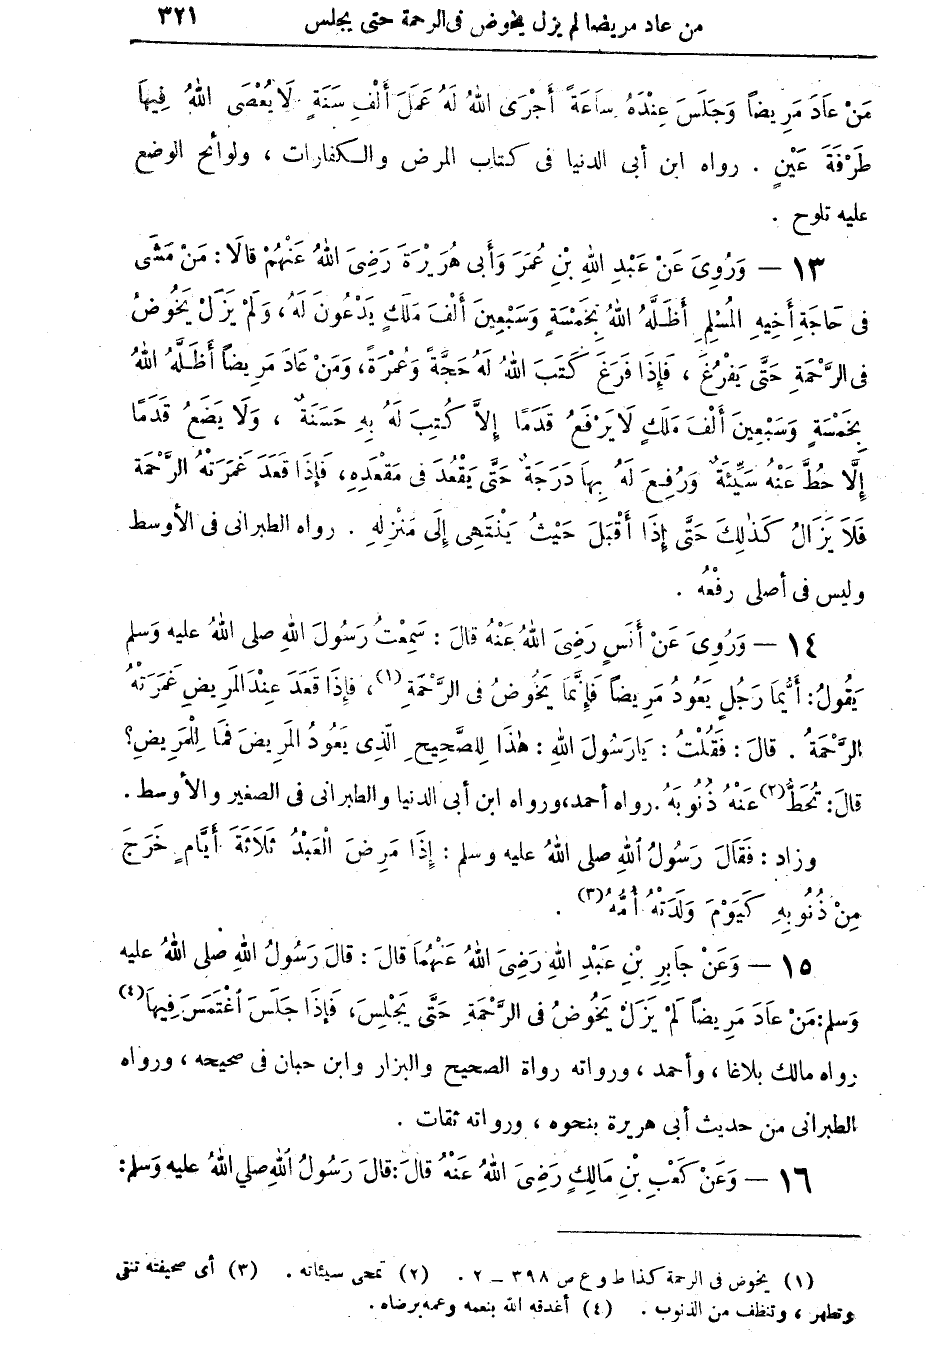 من عاد مريضا لم يزل يخوض فى الرحمة حتى يجلس ٣٢١
مَنْ عَادَ مَرِيضاً وَجَلَسَ عِنْدَهُ سَاعَةً أَجْرَى اللهُ لَهُ عَمَلَ أَلْفِ سَنَةٍ لَا يُعْصَى اللهُ فِيهَا
طَرْفَةَ عَيْنٍ . رواه ابن أبى الدنيا فى كتاب المرض والكفارات ، ولوائح الوضع
عليه تلوح .
١٣ — وَرُوِىَ عَنْ عَبْدِ اللهِ بْنِ عُمَرَ وَأَبِى هُرَيْرَةَ رَضِىَ اللهُ عَنْهُمْ قالَا : مَنْ مَشَى
فى حَاجَةِ أَخِيهِ المُسْلِمِ أَظَلَّهُ اللهُ بِخَمْسَةٍ وَسَبْعِينَ أَلْفَ مَلَكٍ يَدْعُونَ لَهُ ، وَلَمْ يَزَلْ يَخُوضُ
فى الرَّحْمَةِ حَتَّى يَفْرُغَ ، فَإِذَا فَرَغَ كَتَبَ اللهُ لَهُ حَجَّةً وَعُمْرَةً ، وَمَنْ عَادَ مَرِيضاً أَظَلَّهُ اللهُ
بِخَمْسَةٍ وَسَبْعِينَ أَلْفَ مَلَكٍ لَا يَرْفَعُ قَدَمًا إِلاَّ كُتِبَ لَهُ بِهِ حَسَنَةٌ ، وَلَا يَضَعُ قَدَمًا
إِلَّا حُطَّ عَنْهُ سَيِّئَةٌ وَرُفِعَ لَهُ بِهَا دَرَجَةٌ حَتَّى يَقْعُدَ فى مَقْعَدِهِ ، فَإِذَا قَعَدَ غَمَرَتْهُ الرَّحْمَةُ
فَلَا يَزَالُ كَذٰلِكَ حَتَّى إِذَا أَقْبَلَ حَيْثُ يَنْتَهِى إِلَى مَنْزِلِهِ . رواه الطبرانى فى الأوسط
وليس فى أصلى رفْعُه .
١٤ — وَرُوِىَ عَنْ أَنَسٍ رَضِىَ اللهُ عَنْهُ قَالَ : سَمِعْتُ رَسُولَ اللهِ صلى اللهُ عليه وَسلم
يَقُولُ : أَيُّمَا رَجُلٍ يَعُودُ مَرِيضاً فَإِنَّمَا يَخُوضُ فى الرَّحْمَةِ (١) ، فَإِذَا قَعَدَ عِنْدَ المَرِيضِ غَمَرَتْهُ
الرَّحْمَةُ . قالَ : فَقُلْتُ : يَا رَسُولَ اللهِ : هٰذَا لِلصَّحِيحِ الَّذِى يَعُودُ المَرِيضَ فَمَا لِلْمَرِيضِ ؟
قالَ : تُحَطُّ (٢) عَنْهُ ذُنُوبَهُ . رواه أحمد ، ورواه ابن أبى الدنيا والطبرانى فى الصغير والأوسط .
وزاد : فَقَالَ رَسُولُ اللهِ صلى اللهُ عليه وسلم : إِذَا مَرِضَ الْعَبْدُ ثَلَاثَةَ أَيَّامٍ خَرَجَ
مِنْ ذُنُوبِهِ كَيَوْمَ وَلَدَتْهُ أُمُّهُ (٣) .
١٥ — وَعَنْ جَابِرِ بْنِ عَبْدِ اللهِ رَضِىَ اللهُ عَنْهُمَا قَالَ : قالَ رَسُولُ اللهِ صلى اللهُ عليه
وَسلم : مَنْ عَادَ مَرِيضاً لَمْ يَزَلْ يَخُوضُ فى الرَّحْمَةِ حَتَّى يَجْلِسَ ، فَإِذَا جَلَسَ اغْتَمَسَ فِيهَا (٤)
رواه مالك بلاغا ، وأحمد ، ورواته رواة الصحيح والبزار وابن حبان فى صحيحه ، ورواه
الطبرانى من حديث أبى هريرة بنحوه ، ورواته ثقات .
١٦ — وَعَنْ كَعْبِ بْنِ مَالِكٍ رَضِىَ اللهُ عَنْهُ قَالَ : قالَ رَسُولُ اللهِ صلى اللهُ عليه وَسلم :
(١) يخوض فى الرحمة كذا ط و ع ص ٣٩٨ — ٢ . (٢) تمحى سيئاته . (٣) أى صحيفته تنقى
وتطهر ، وتنظف من الذنوب . (٤) أغدقه الله بنعمه وعمه برضاه .